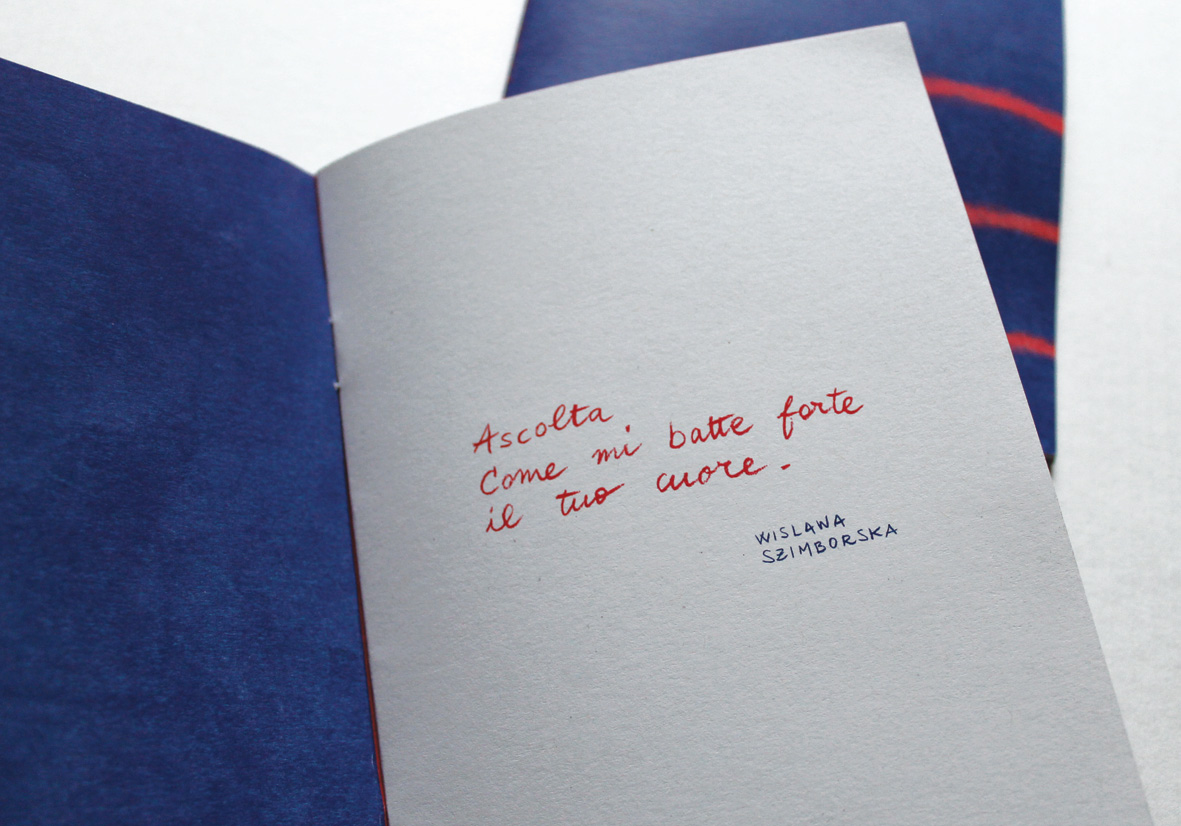 Ascolta
Come mi batte forte
il tuo cuore.
WISLAWA
SZIMBORSKA